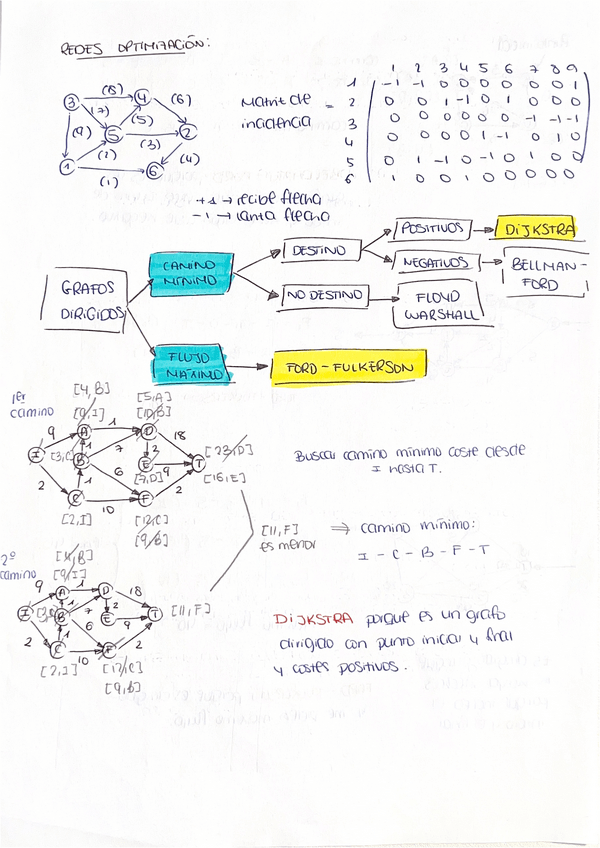 REDES OPTIMIZACIÓN:
1 2 3 4 5 6 7 8 9
(8)
3 4 (6)
(7)
(9) (5)
5 (3) 2
(2) (4)
1 6
(1)
Matriz de incidencia =
1 -1 -1 0 0 0 0 0 0 1
2 0 0 1 -1 0 1 0 0 0
3 0 0 0 0 0 0 -1 -1 -1
4 0 0 0 0 1 -1 0 1 0
5 0 1 -1 0 -1 0 1 0 0
6 1 0 0 1 0 0 0 0 0
+1 → recibe flecha
-1 → lanza flecha
GRAFOS DIRIGIDOS
CAMINO MÍNIMO
DESTINO
POSITIVOS
DIJKSTRA
NEGATIVOS
BELLMAN-FORD
NO DESTINO
FLOYD WARSHALL
FLUJO MÁXIMO
FORD-FULKERSON
1er camino
[4,B]
[9,I]
[5,A]
[10,B]
9 A 1 D 18
I [3,C] B 1 7 2 [23,D]
E 9 T
[7,D] [16,E]
2 1 6 2
C 10 F
[2,I] [12,C]
[9,B]
Buscar camino mínimo coste desde
I hasta T.
[11,F]
es menor
⇒ camino mínimo:
I - C - B - F - T
2º camino
[4,B]
[9,I]
9 A 1 D 18
I B 1 7 2 E 9 T [11,F]
2 1 6 2
C 10 F
[2,I] [12,C]
[9,B]
DIJKSTRA porque es un grafo
dirigido con punto inicial y final
y costes positivos.